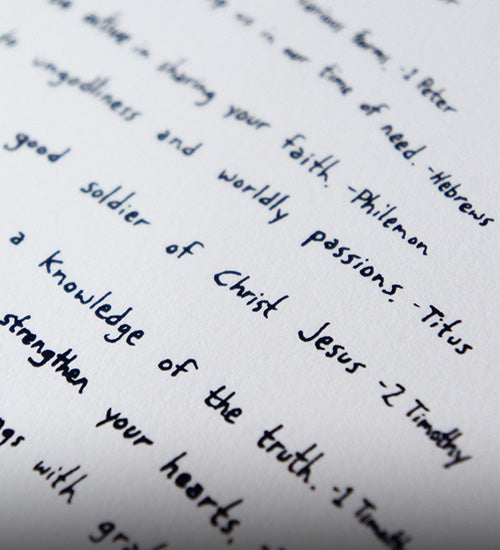 various forms. -1 Peter
us in our time of need. -Hebrews
active in sharing your faith. -Philemon
to ungodliness and worldly passions. -Titus
good soldier of Christ Jesus -2 Timothy
a knowledge of the truth. -1 Timothy
strengthen your hearts.
with